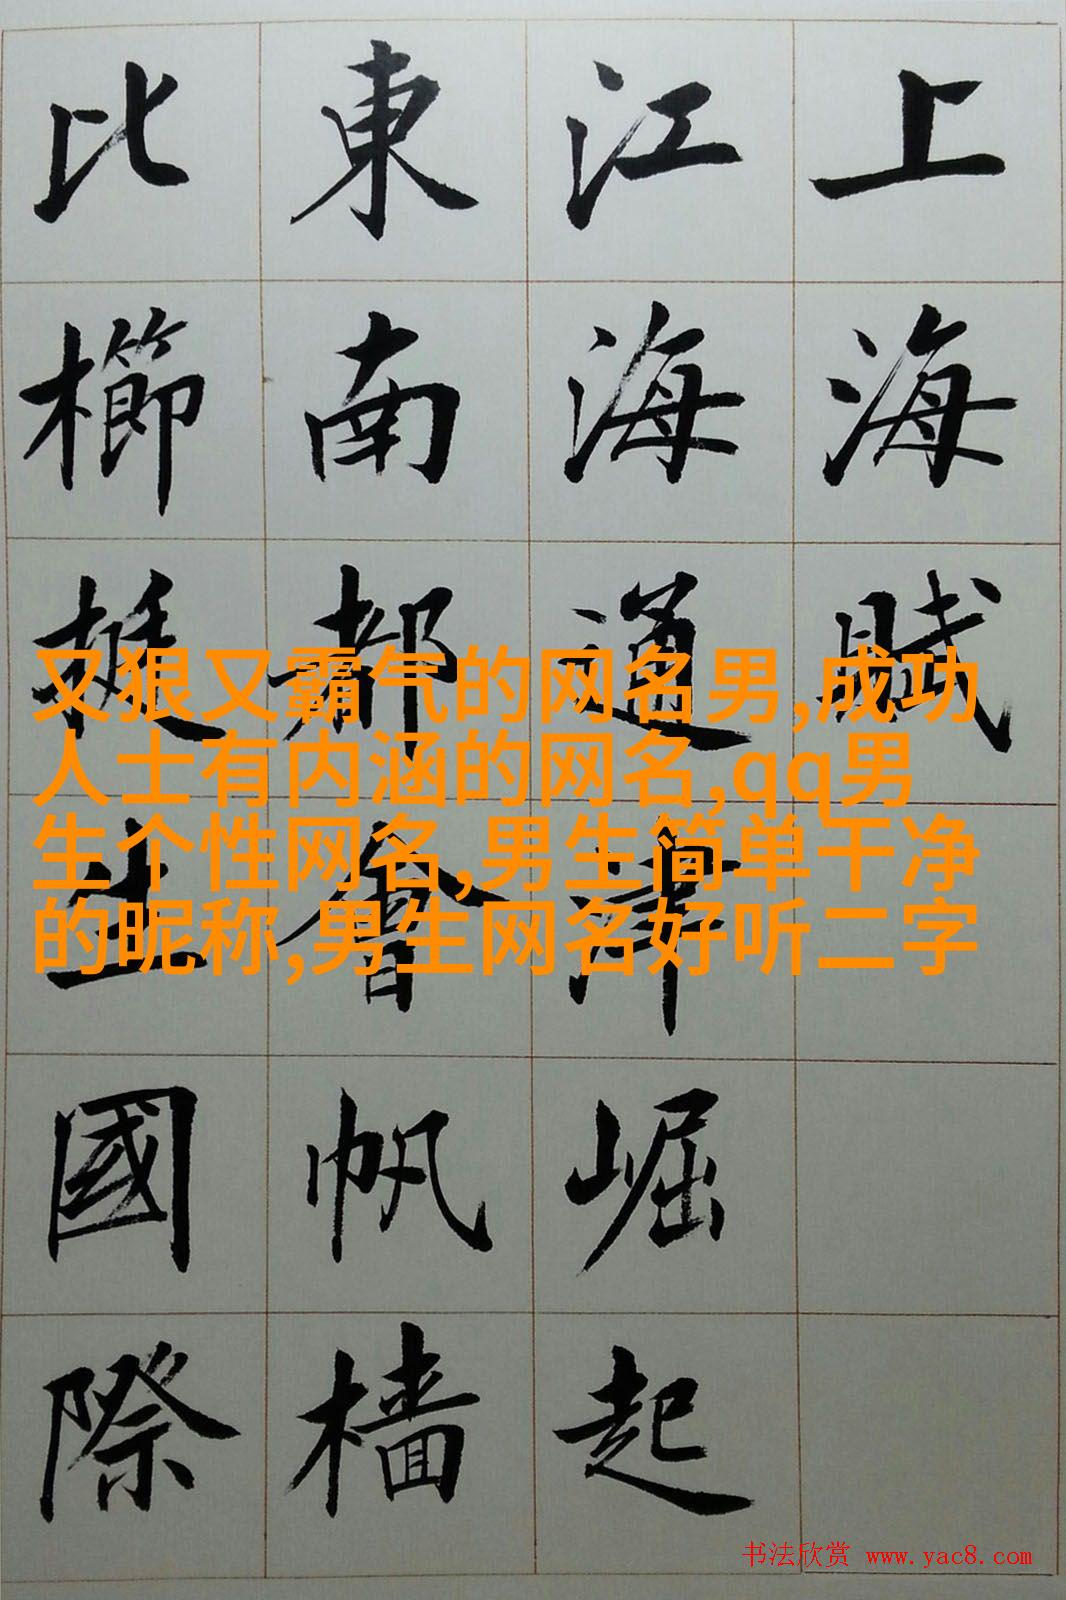 上海賦
江海通津崛起
東南都會帆檣
比櫛挺立國際
又狠又霸气的网名男,成功
人士有内涵的网名,qq男
生个性网名,男生简单干净
的昵称,男生网名好听二字
书法欣赏 www.yac8.com